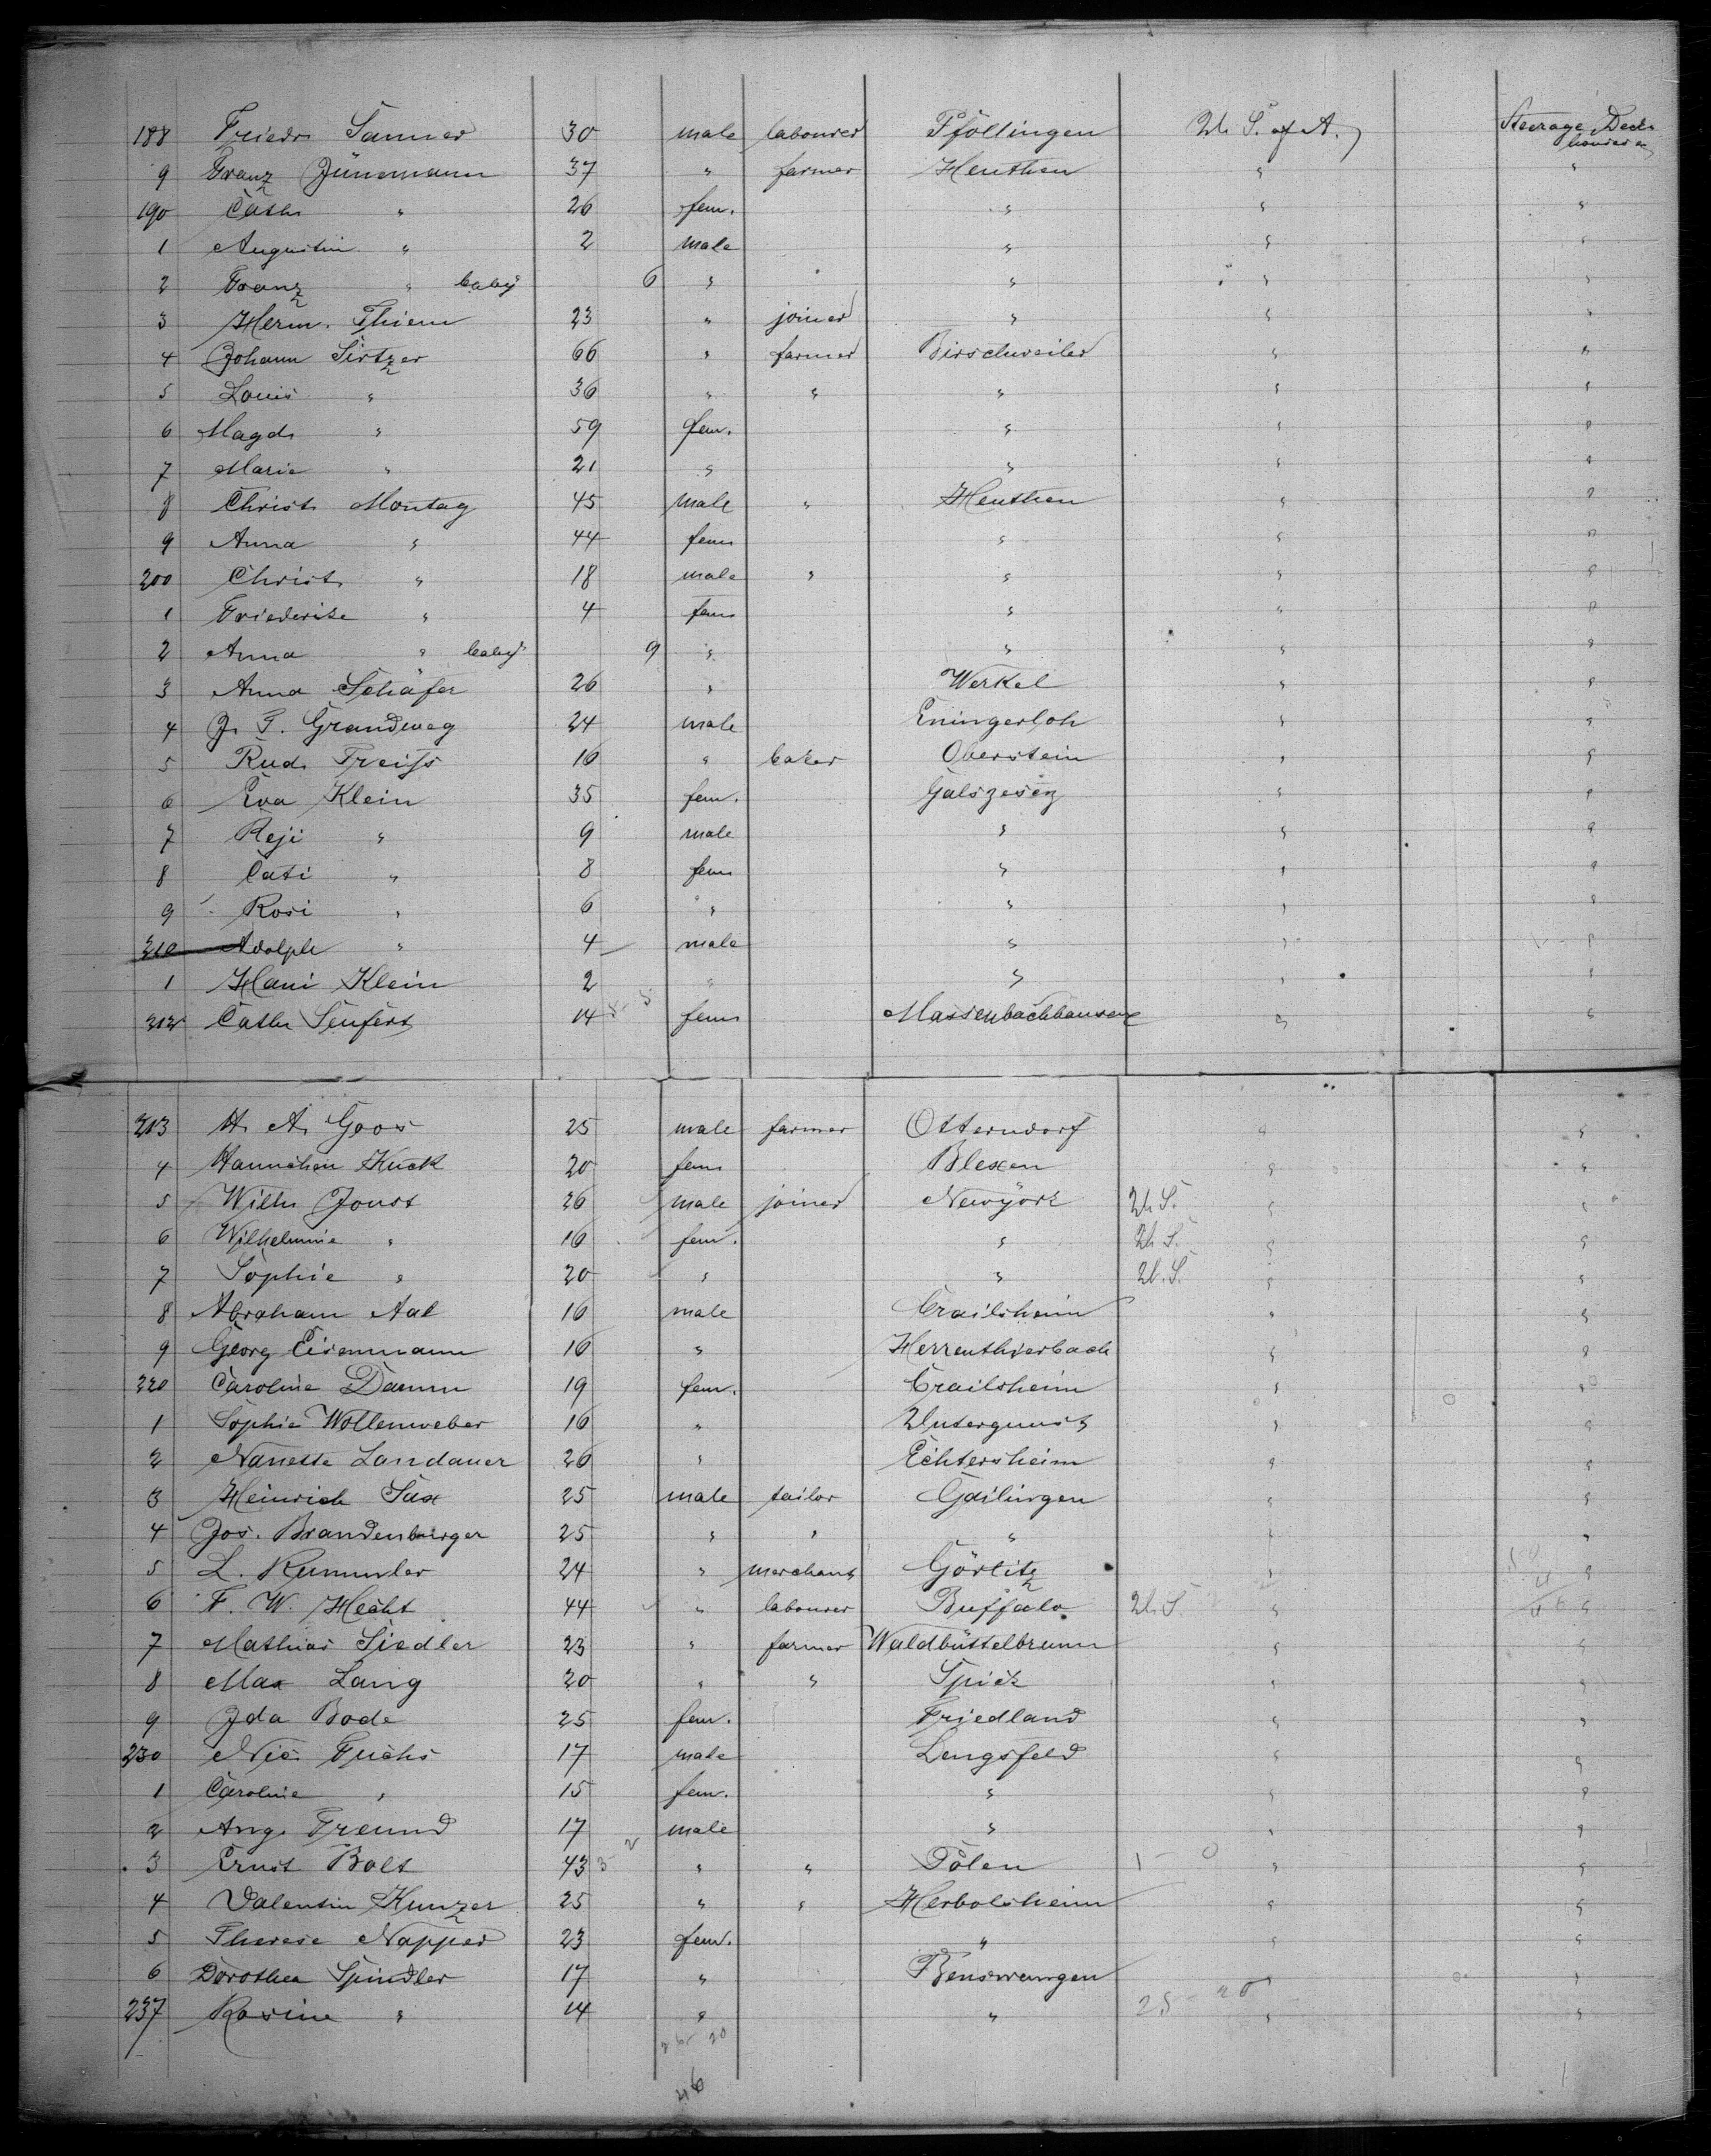 188 Friedr. Sanner 30 male labourer Pföllingen U. S. of A. Steerage Deck
9 Franz Jünemann 37 " farmer Heuthen " "
190 Cath. " 26 fem. " " "
1 Augustin " 2 male " " "
2 Franz " baby 6 " " " "
3 Herm. Thiem 23 " joiner " " "
4 Johann Sirtzer 66 " farmer Birschweiler " "
5 Louis " 36 " " " " "
6 Magd. " 59 fem. " " "
7 Marie " 21 " " " "
8 Christ. Montag 45 male " Heuthen " "
9 Anna " 44 fem " " "
200 Christ. " 18 male " " " "
1 Friederike " 4 fem " " "
2 Anna " baby 9 " " " "
3 Anna Schäfer 26 " Werkel " "
4 J. F. Grandweg 24 male Enningerloh " "
5 Rud. Treiss 16 " baker Oberstein " "
6 Eva Klein 35 fem. Galszesez " "
7 Reji " 9 male " " "
8 Cati " 8 fem " " "
9 Rosi " 6 " " " "
210 Adolph " 4 male " " "
1 Hani Klein 2 " " " "
212 Cath. Seufert 14 fem Massenbachhausen " "
213 H. A. Goos 25 male farmer Otterndorf " "
4 Hannchen Kuck 20 fem Blexen " "
5 Wilh. Joust 26 male joiner Newyork U. S. " "
6 Wilhelmine " 16 fem. " U. S. " "
7 Sophie " 20 " " U. S. " "
8 Abraham Aal 16 male Crailsheim " "
9 Georg Eisenmann 16 " Herrenthierbach " "
220 Caroline Damm 19 fem. Crailsheim " "
1 Sophie Wollenweber 16 " " "
2 Nanette Landauer 26 " Echtersheim " "
3 Heinrich Sax 25 male tailor Gailingen " "
4 Jos. Brandenburger 25 " " " " "
5 L. Rummler 24 " merchant Görlitz " "
6 F. W. Hecht 44 " labourer Buffalo U. S. " "
7 Mathias Siedler 23 " farmer Waldbüttelbrunn " "
8 Max Lang 20 " " Spick " "
9 Ida Bode 25 fem. Friedland " "
230 Nic. Fuchs 17 male Lengsfeld " "
1 Caroline " 15 fem. " " "
2 Aug. Freund 17 male " " "
3 Ernst Bolt 43 " " Polen " "
4 Valentin Kunzer 25 " " Herbolsheim " "
5 Therese Napper 23 fem. " " "
6 Dorothea Spindler 17 " Benswangen " "
237 Rosine " 14 " " 25 - 20 " "
46